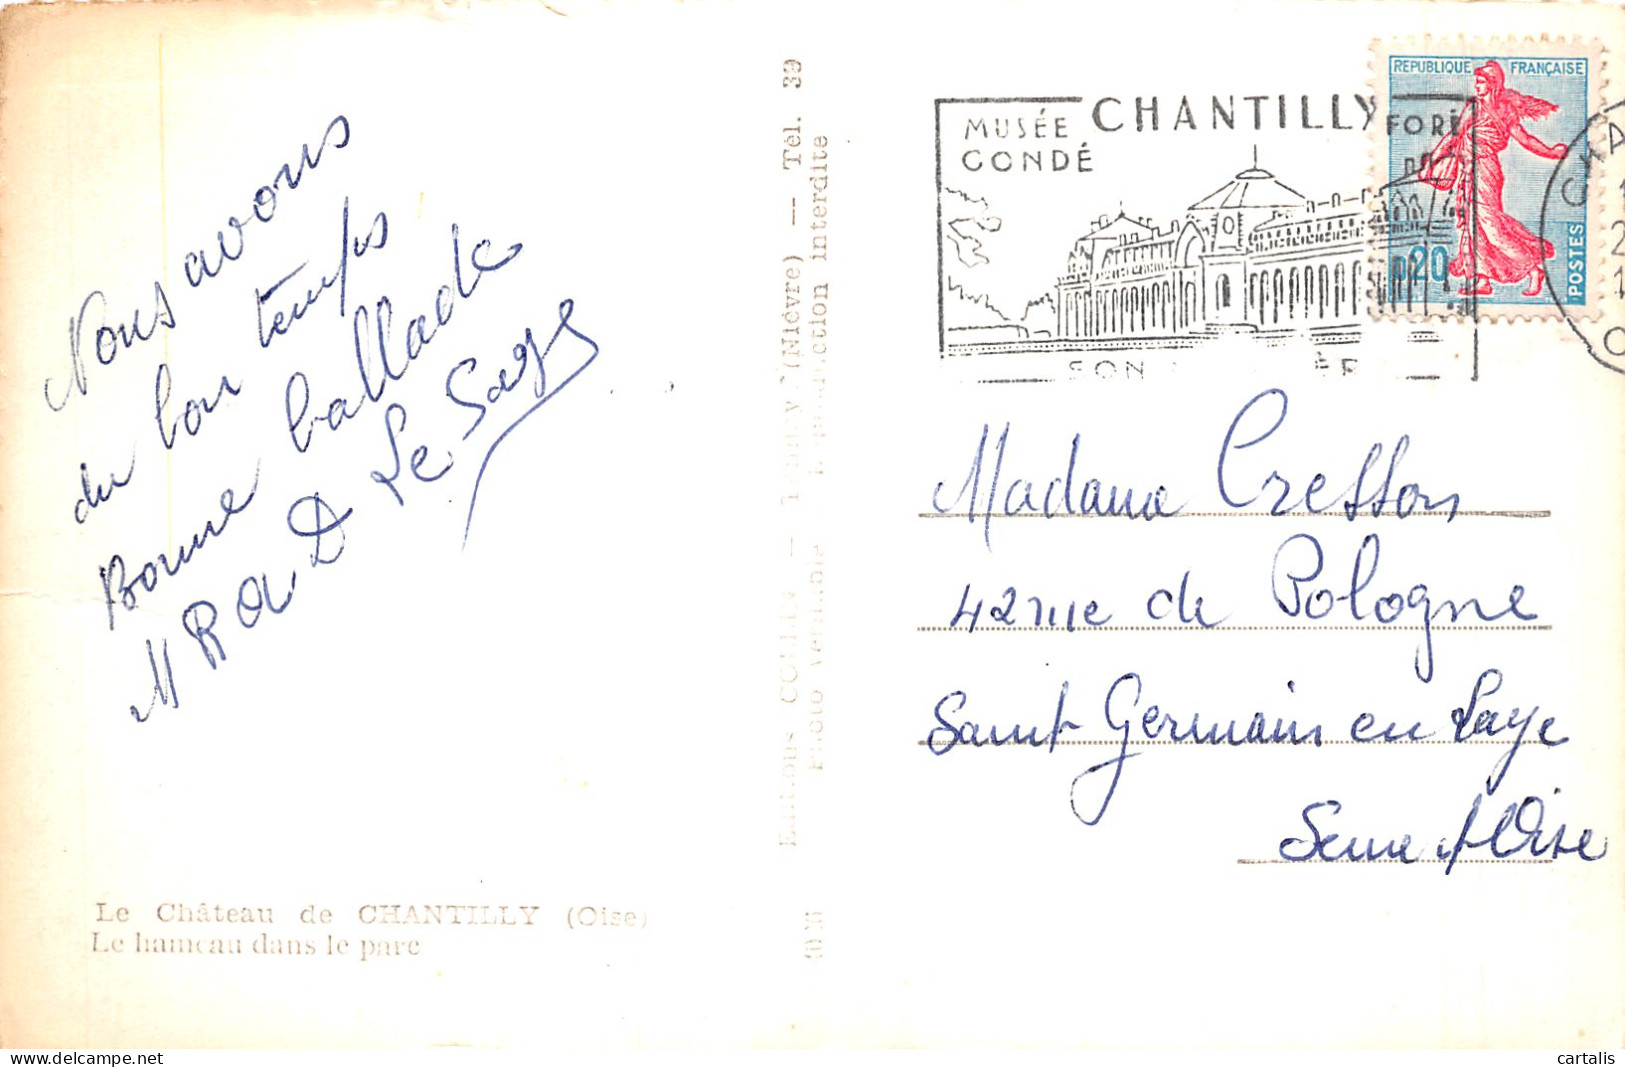 Nous avons
du bon temps
Bonne ballade
M R a D Le Sage
Le Château de CHANTILLY (Oise)
Le hameau dans le parc
Editions COLLIN — (Nièvre) — Tél. 39
Photo véritable — Reproduction interdite
MUSÉE CHANTILLY FORÊ
CONDÉ
SON
REPUBLIQUE FRANÇAISE
0,20
POSTES
CHA
Madame Cresson
42 rue de Pologne
Saint Germain en Laye
Seine et Oise
cartalis